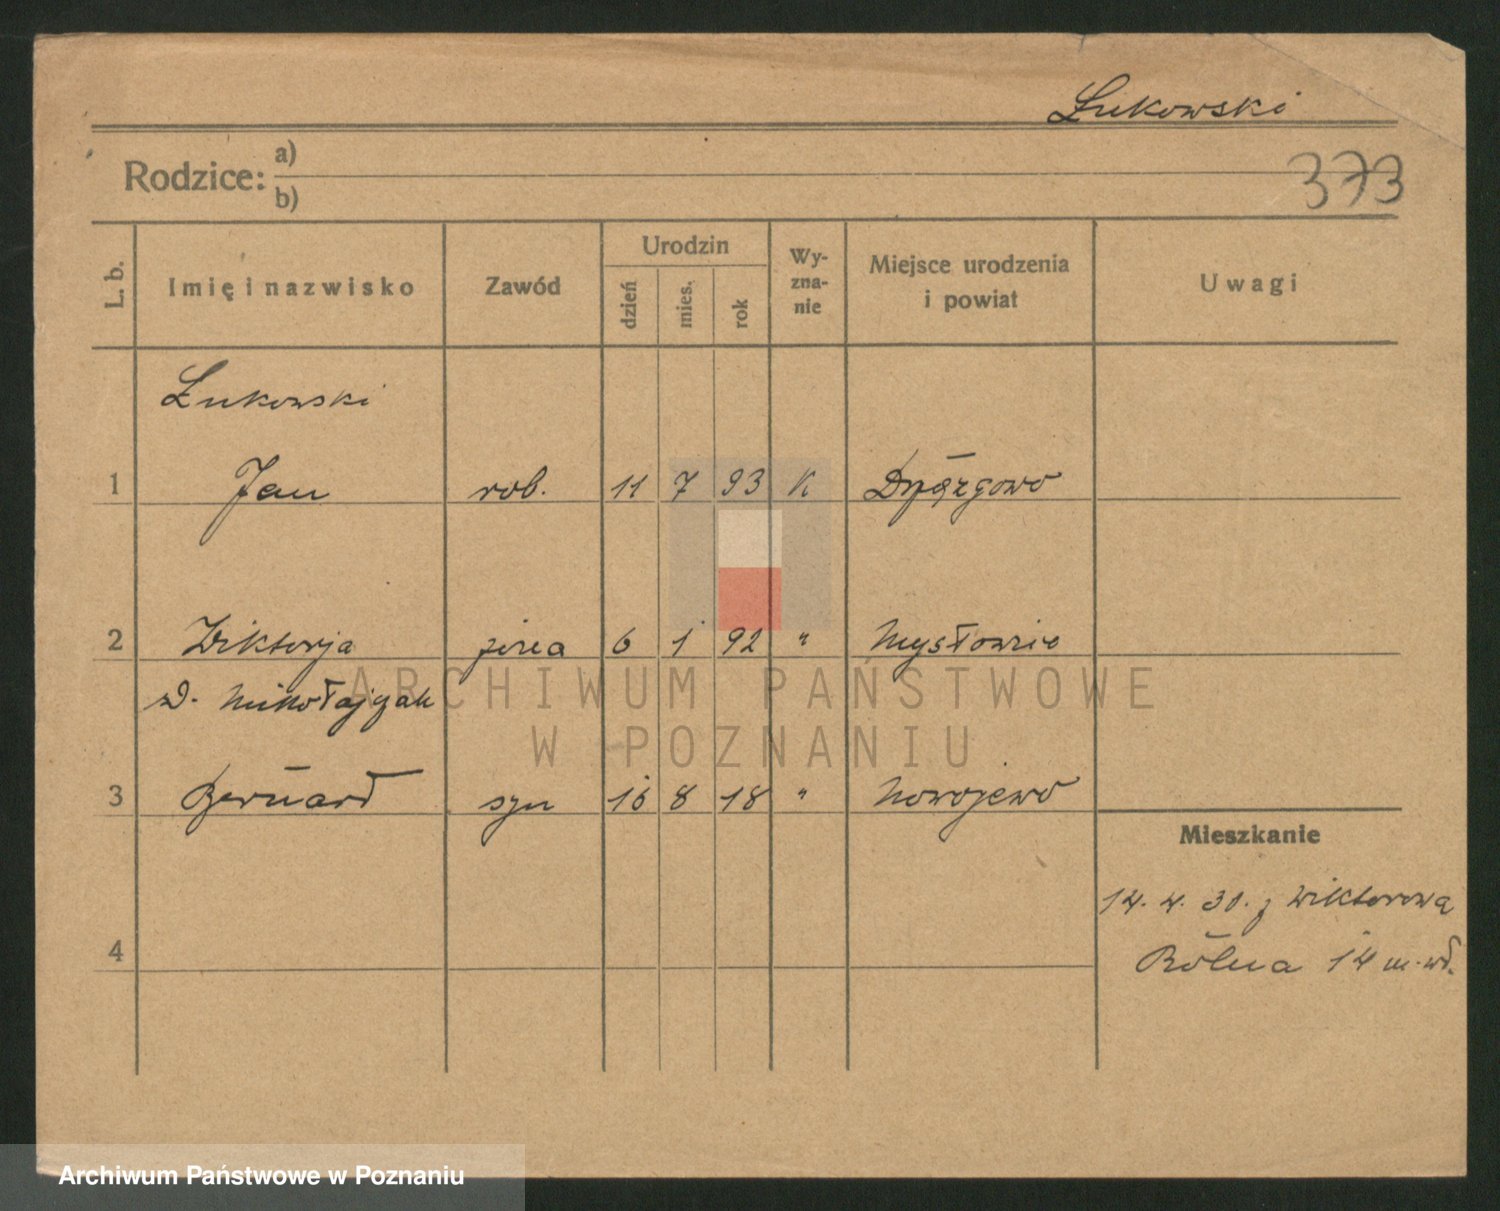 Łukowski
Rodzice: a)
b)
373
L. b. Imię i nazwisko Zawód Urodzin dzień mies. rok Wy-zna-nie Miejsce urodzenia i powiat Uwagi
Łukowski
1 Jan rob. 11 7 93 K
2 Wiktorja 6 1 92 "
d. Mikołajczak
3 Bernard syn 16 8 18 "
Mieszkanie
14. 4. 30. z Wiktorowa
4
Rólna 14 m. wł.
ARCHIWUM PAŃSTWOWE
W POZNANIU
Archiwum Państwowe w Poznaniu